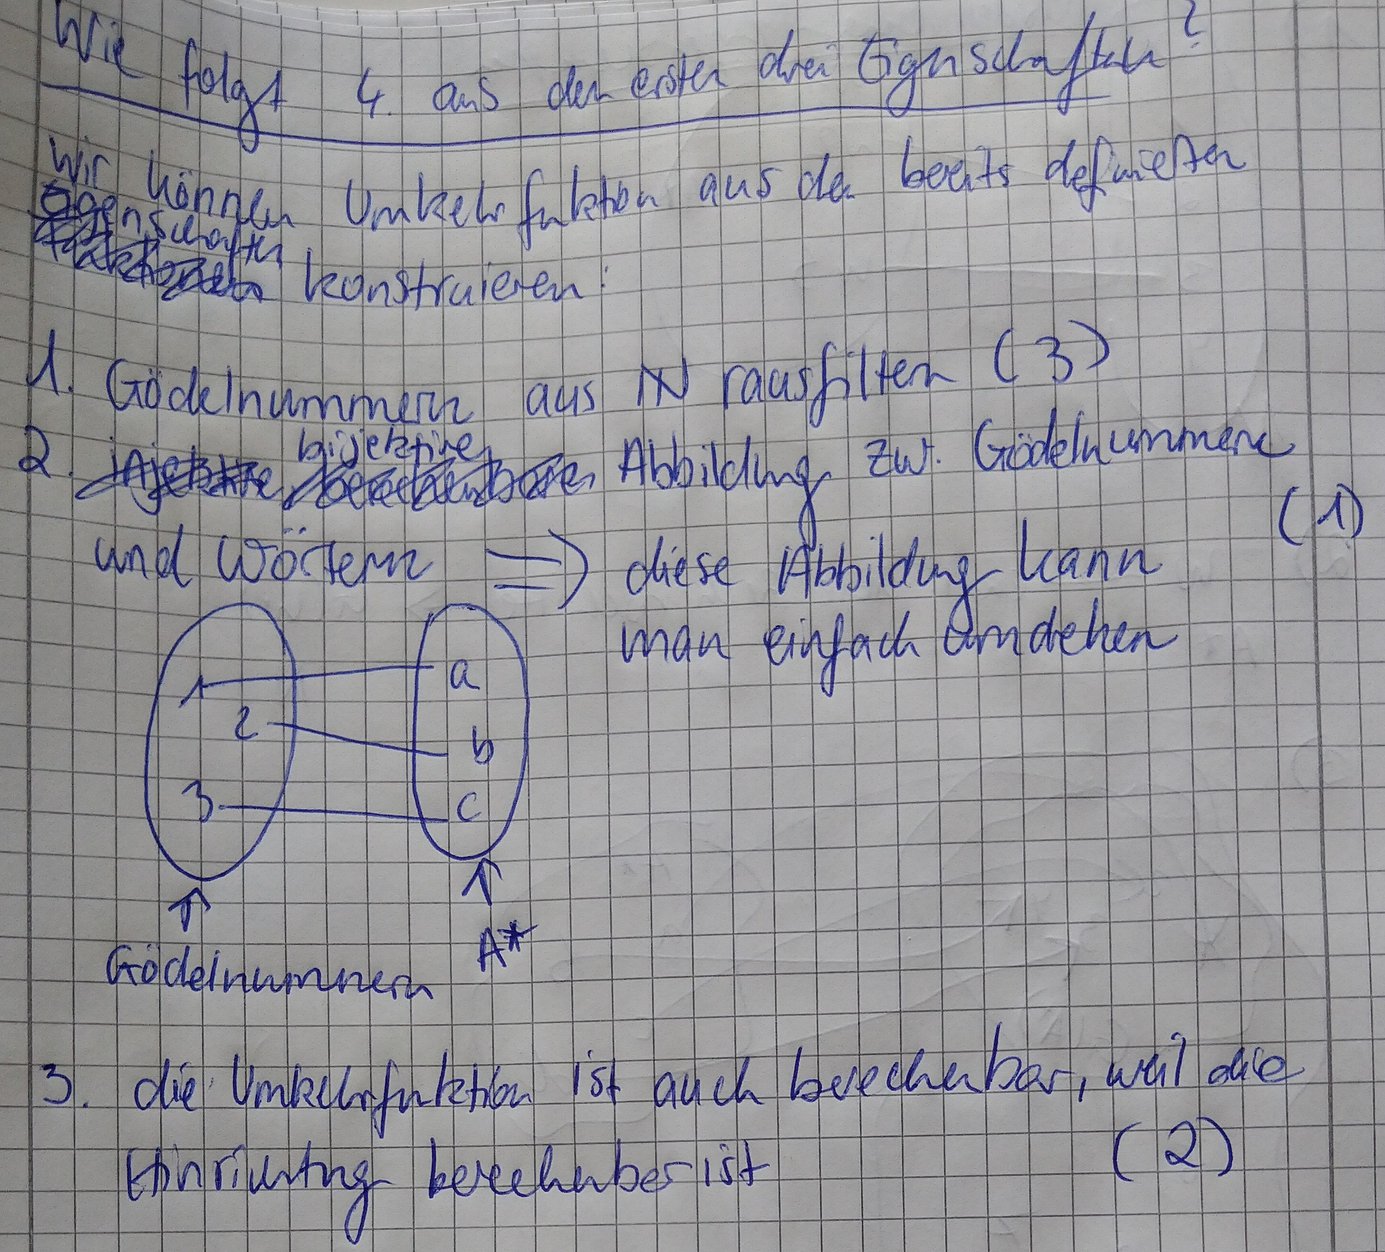 Wie folgt 4. aus den ersten drei Eigenschaften?
Wir können Umkehrfunktion aus den bereits definierten
Eigenschaften konstruieren:
1. Gödelnummern aus ℕ rausfiltern (3)
2. bijektive Abbildung zw. Gödelnummern
und Wörtern ⇒ diese Abbildung kann (1)
man einfach umdrehen
1 a
2 b
3 c
↑ ↑
Gödelnummern A*
3. die Umkehrfunktion ist auch berechenbar, weil die
Hinrichtung berechenbar ist (2)